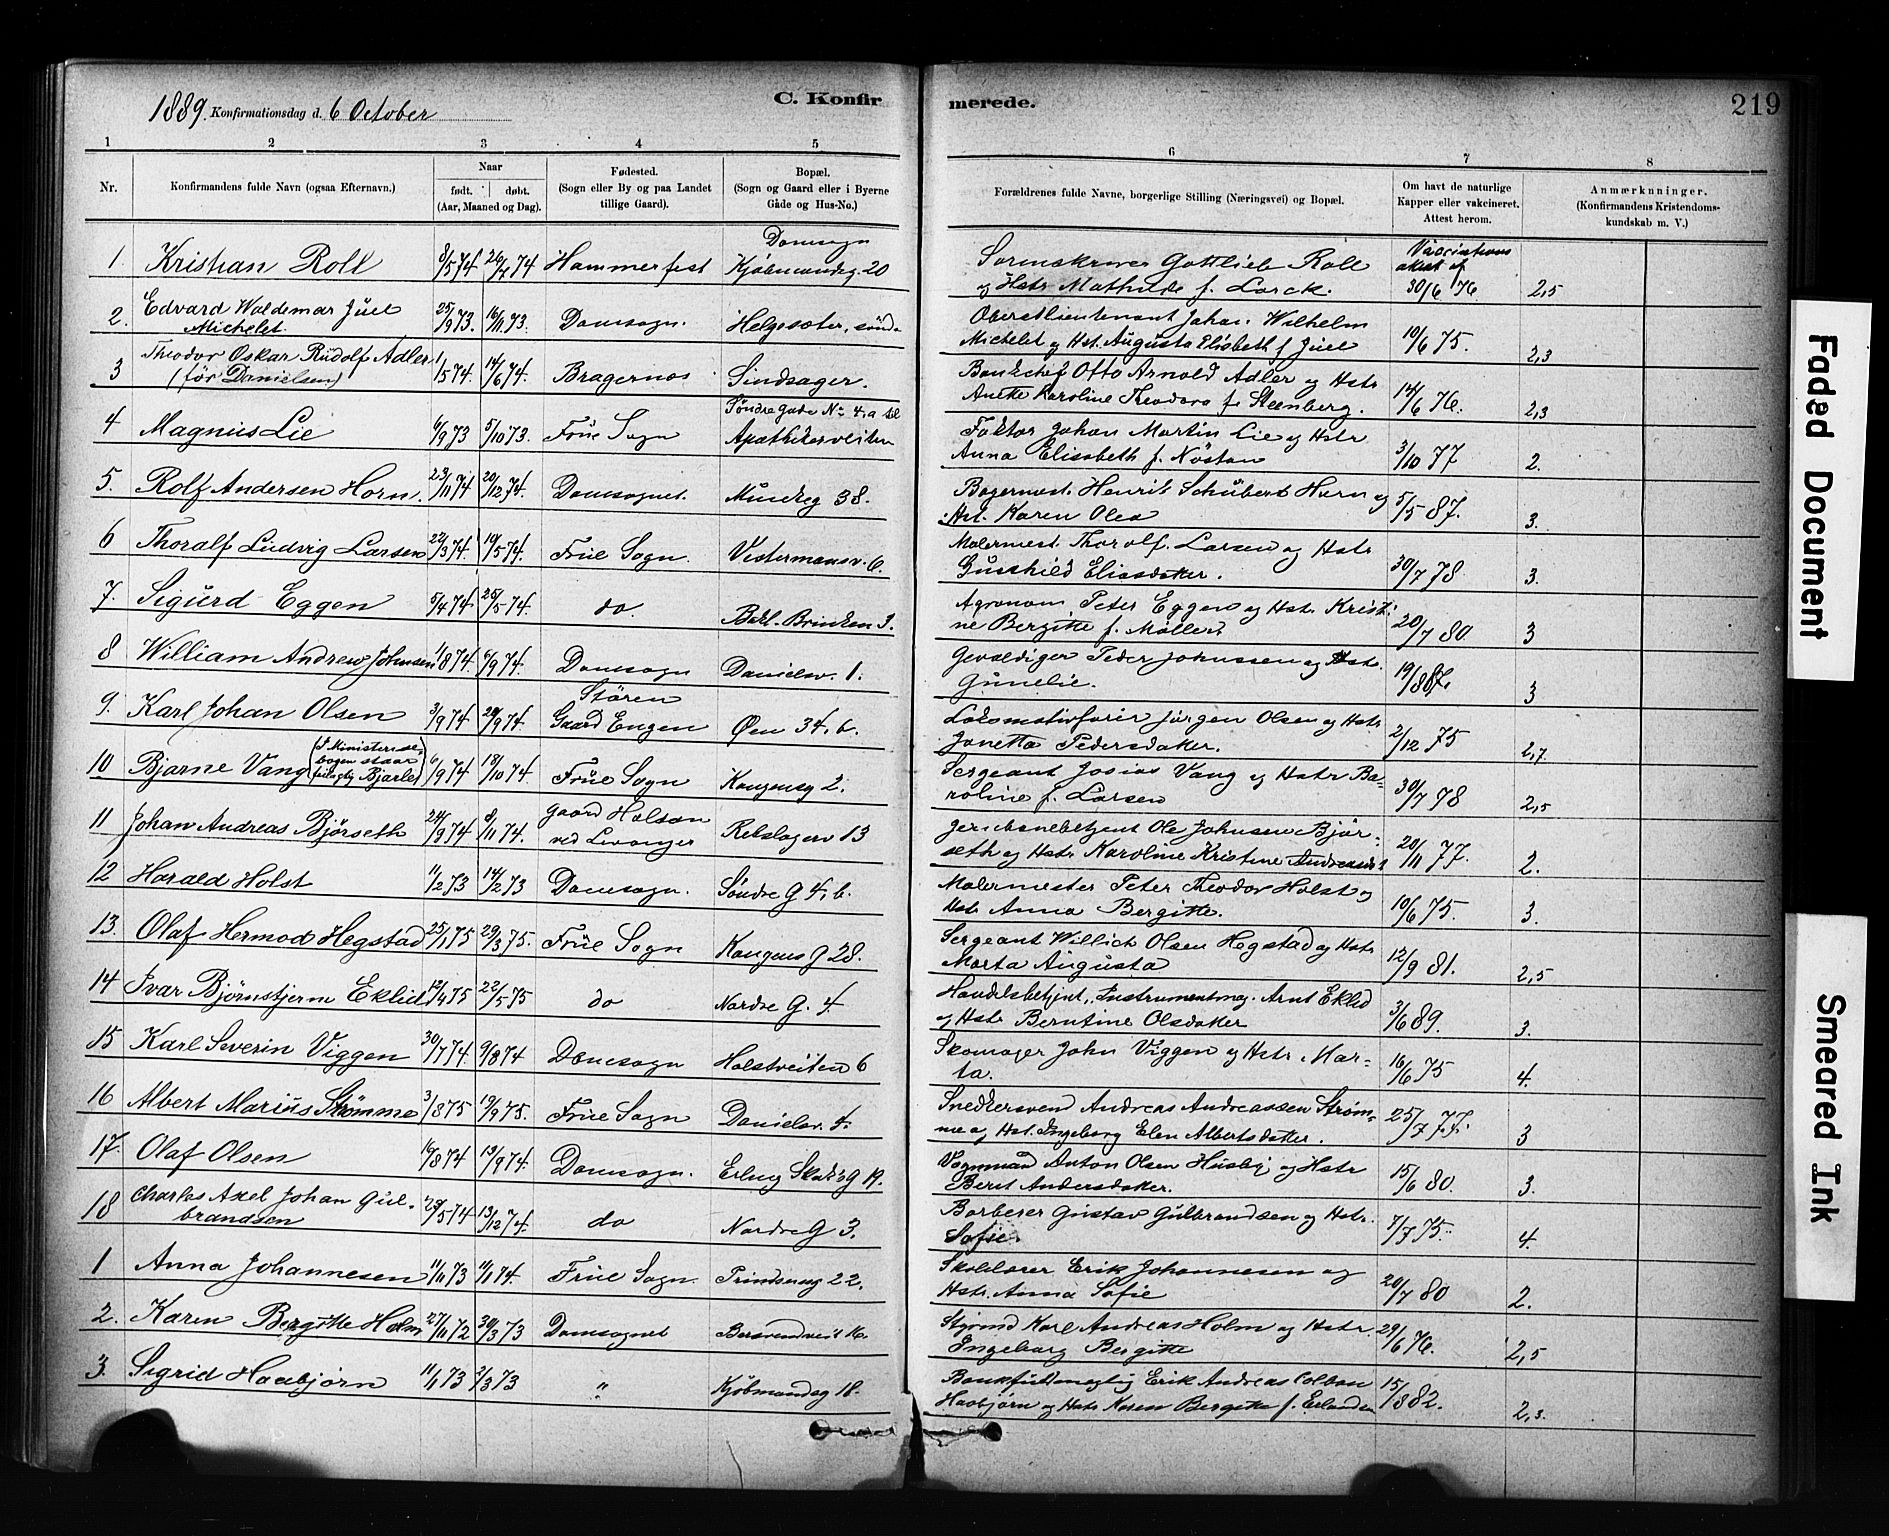 1889. Konfirmationsdag d. 6 October
C. Konfirmerede.
219
1 2 3 4 5 6 7 8
Nr.
Konfirmandens fulde Navn (ogsaa Efternavn.)
Naar
født. døbt.
(Aar, Maaned og Dag).
Fødested.
(Sogn eller By og paa Landet
tillige Gaard).
Bopæl.
(Sogn og Gaard eller i Byerne
Gåde og Hus-No.)
Forældrenes fulde Navne, borgerlige Stilling (Næringsvei) og Bopæl.
Om havt de naturlige
Kapper eller vakcineret.
Attest herom.
Anmærknninger.
(Konfirmandens Kristendoms-
kundskab m. V.)
1. Kristian Roll 8/5 74 26/7 74 Hammerfest Domsogn Kjøbmandsg. 20
Sorenskriver Gottlieb Roll
og Hstr Mathilde f. Lorck. 30/6 76 2,5
2. Edvard Waldemar Juel
Michelet. 25/9 73. 16/11 73. Domsogn. Helgesæter, 
Oberstlieutenant Johan Wilhelm
Michelet og Hst. Augusta Elisbeth f Juel 10/6 75. 2,3
3 Theodor Oskar Rudolf Adler
(før Danielsen) 1/5 74. 14/6 74. Bragernes Sindsager.
Bankchef Otto Arnold Adler og Hstr
Anette Karoline Theodora f. Steenberg. 14/6 76. 2,3
4 Magnus Lie 6/9 73 5/10 73. Frue Sogn Søndre gade No 4, a til
Apothekerveiten
Faktor Johan Martin Lie og Hstr
Anna Elisabeth f. Nøstan 3/10 77 2.
5. Rolf Andersen Horn. 23/11 74 20/12 74. Domsognet. Munkeg 38.
Bagermest. Henrik Schubert Horn og
Hst. Karen Olea 5/5 87. 3.
6 Thoralf Ludvig Larsen 22/3 74. 10/5 74. Frue Sogn. Vestermansv. 6.
Malermest. Thorolf Larsen og Hstr
Gunhild Eliasdatter. 30/7 78 3.
7. Sigurd Eggen 5/4 74 25/5 74. do. Bakl. Brinken 3.
Agronom Peter Eggen og Hstr Kristi
ne Bergitte f. Møller 20/7 80 3
8 William Andrew Johnsen 1/8 74. 6/9 74. Domsogn Danielsv. 1.
Gevaldiger Peder Johnssen og Hstr.
Gunelie. 3
9. Karl Johan Olsen 3/9 74 20/9 74. Støren
Gaard Engen Øen 34, b.
Lokomotivfører Jørgen Olsen og Hstr
Janetta Pedersdatter. 2/12 75 2,7.
10 Bjarne Vang (I Ministerial-
bogen staar
feilagtig Bjarle) 6/9 74 18/10 74. Frue Sogn Kongensg 2.
Sergeant Josias Vang og Hstr Ba-
roline f. Larsen 30/7 78 2,5
11 Johan Andreas Bjørseth 24/9 74 8/11 74. Gaard Holsan
ved Levanger Rebslagerv 13
Jernbanebetjent Ole Johnsen Bjør-
seth og Hstr Karoline Kristine 20/11 77. 2.
12 Harald Holst 11/2 73 14/2 73 Domsogn. Søndre G 4, b.
Malermester Peter Theodor Holst og
Hstr Anna Bergitte. 10/6 75. 3.
13. Olaf Hermod Hegstad 25/1 75 29/3 75. Frue Sogn Kongens G 28.
Sergeant Willich Olsen Hegstad og Hstr
Marta Augusta 12/9 81. 2,5
14 Ivar Bjørnstjern Eklid 12/4 75 22/5 75 do Nordre G. 4.
Handelsbetjent, Instrumentmag. Arnt Eklid
og Hstr Berntine Olsdatter 3/6 89. 3.
15 Karl Severin Viggen 30/7 74. 9/8 74 Domsogn Holstveiten 6
Skomager John Viggen og Hstr Mar-
ta. 16/6 75 4.
16 Albert Marius Strømme 3/8 75 19/9 75. Frue Sogn Danielsv. 4.
Snedkersvend Andreas Andreassen Strøm-
me og Hst. Ingeborg Elen Albertsdatter. 25/7 77. 3
17. Olaf Olsen 16/8 74 13/9 74. Domsogn. Erling Skakks G 19.
Vognmand Anton Olsen Husby og Hstr
Berit Andersdatter. 15/6 80. 3.
18 Charles Axel Johan Gul-
brandsen 28/5 74 13/12 74. do Nordre G 3.
Barberer Gustav Gulbrandsen og Hstr.
Sofie 7/7 75. 4.
1 Anna Johannesen 11/11 73 11/1 74. Frue Sogn. Prindsensg 22.
Skolelærer Erik Johannesen og
Hstr. Anna Sofie 20/7 80 2.
2. Karen Bergitte Holm 27/11 72 30/3 73 Domsognet Bersvendveit 16.
Styrmd Karl Andreas Holm og Hstr.
Ingeborg Bergitte 29/6 76. 2,5
3. Sigrid Haabjørn 11/1 73 2/3 73 " Kjøbmandsg 18.
Bankfuldmægtig Erik Andreas Colban
Haabjørn og Hstr Karen Bergitte f. Erlandsen 15/8 82. 2,3.
Faded Document
Smeared Ink